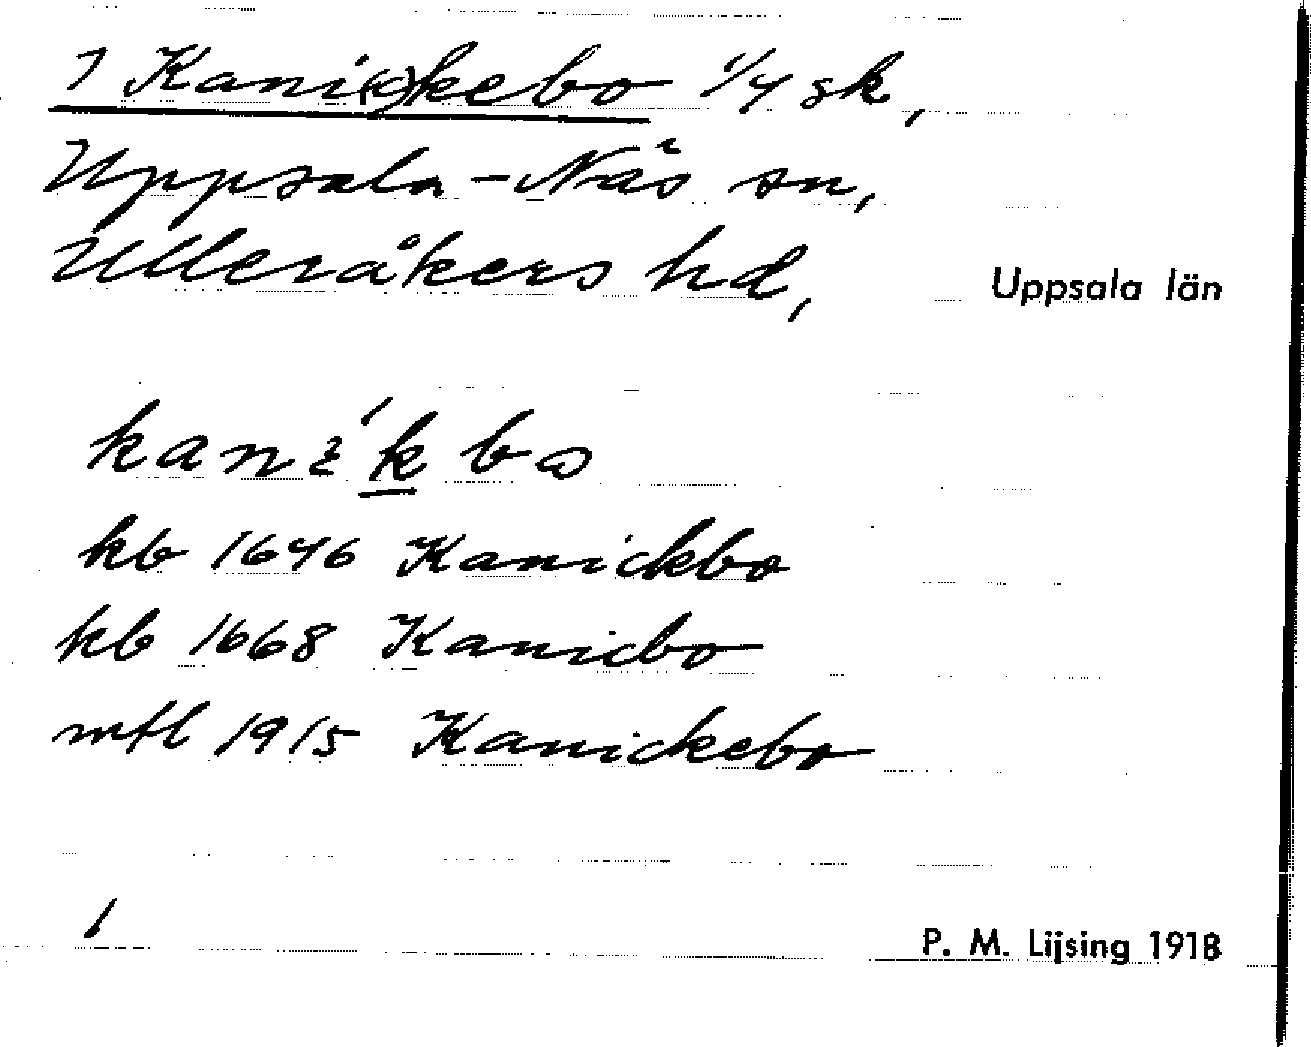 1 Kani(c)kebo 1/4 sk,
Uppsala-Näs sn,
Ulleråkers hd, Uppsala län
kb 1646 Kanickbo
kb 1668 Kanicbo
mtl 1915 Kanickebo
1
P. M. Lijsing 1918